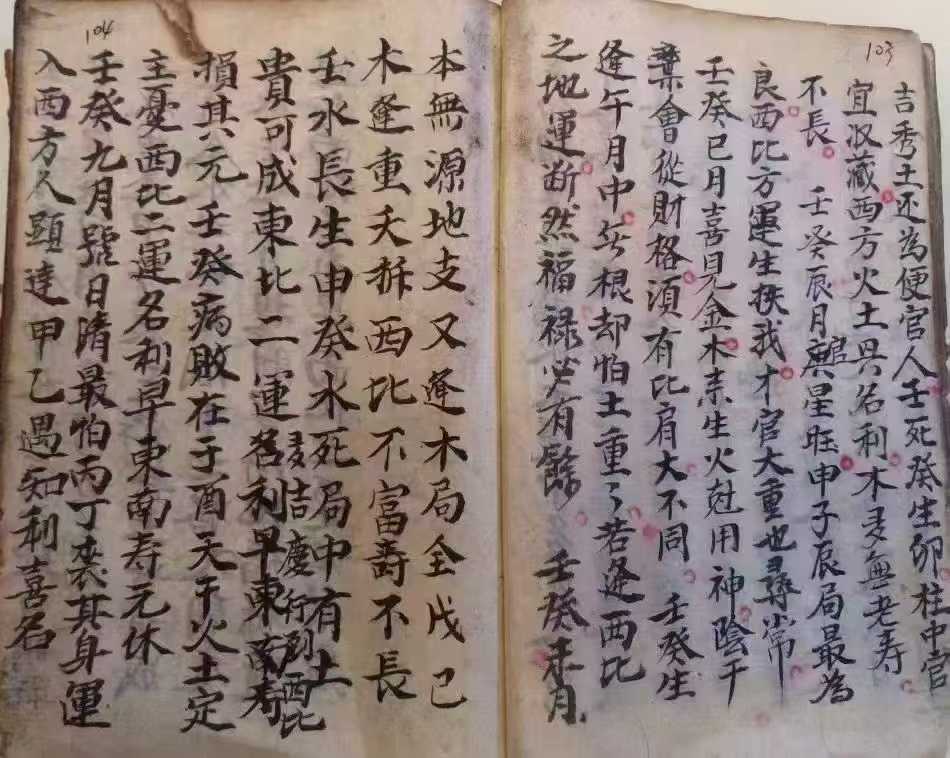 103
吉秀土还為便官人壬死癸生卯柱中官
宜收藏西方火土兴名利木多無老寿
不長 壬癸辰月奥星旺申子辰局最為
良西比方運生扶我才官大重也尋常
壬癸巳月喜見金木来生火尅用神陰干
棄會從財格須有比肩大不同 壬癸生
逢午月中 根却怕土重々若逢西比
之地運断然福禄必有餘 壬癸未月
104
本無源地支又逢木局全戊己
木逢重夭拆西比不富壽不長
壬水長生申癸水死局中有土
貴可成東比二運名利早東南寿
吉慶行到酉比
損其元 壬癸病敗在于酉天干火土定
主憂西比二運名利早東南寿元休
壬癸九月號日清最怕丙丁袭其身運
入西方人顕達甲乙遇知利喜名